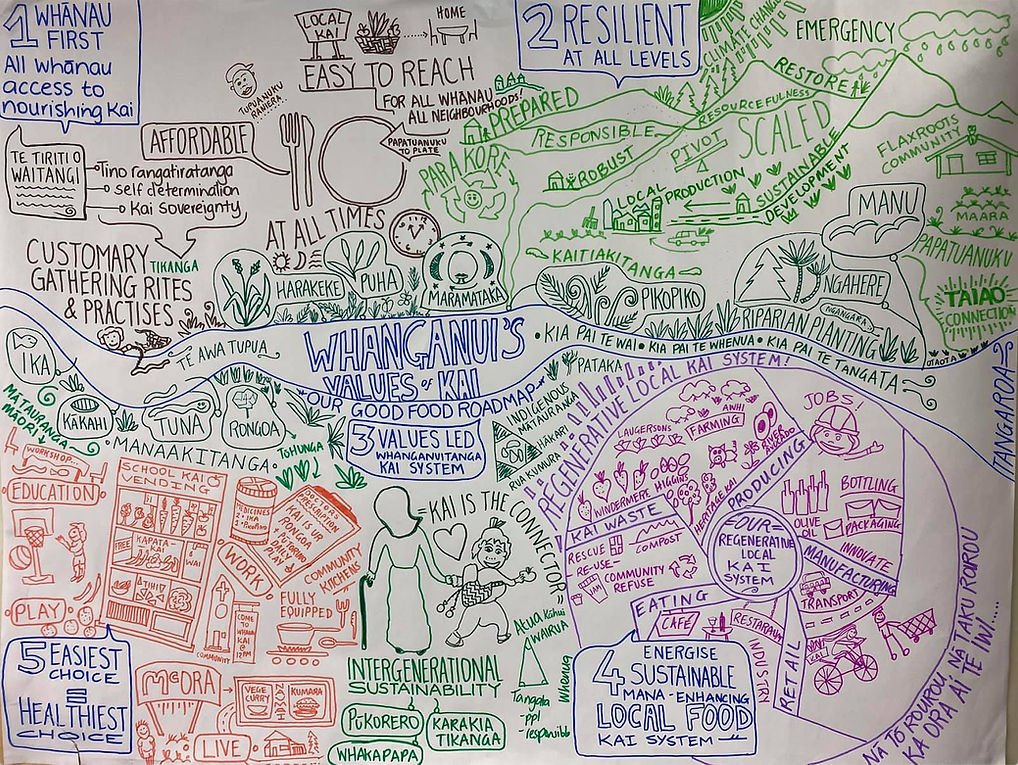 1 WHĀNAU
FIRST
All whānau
access to
nourishing Kai
LOCAL
KAI
HOME
EASY TO REACH
FOR ALL WHANAU
ALL NEIGHBOURHOODS!
TUPUANUKU
AFFORDABLE
PAPATUANUKU
TO PLATE
TE TIRITI O
WAITANGI
Tino rangatiratanga
self determination
Kai sovereignty
AT ALL TIMES
CUSTOMARY
GATHERING RITES
& PRACTISES
TIKANGA
HARAKEKE
PUHA
MARAMATAKA
2 RESILIENT
AT ALL LEVELS
CLIMATE CHANGE
EMERGENCY
PREPARED
RESTORE
RESPONSIBLE
RESOURCEFULNESS
PARAKORE
ROBUST
PIVOT
SCALED
LOCAL
PRODUCTION
SUSTAINABLE
DEVELOPMENT
FLAXROOTS
COMMUNITY
MAARA
MANU
PAPATUANUKU
KAITIAKITANGA
PIKOPIKO
NGAHERE
NGANGARA
TAIAO
CONNECTION
RIPARIAN PLANTING
OTAOTA
IKA
TE AWA TUPUA
WHANGANUI'S
VALUES of KAI
• OUR GOOD FOOD ROADMAP •
• KIA PAI TE WAI • KIA PAI TE WHENUA • KIA PAI TE TANGATA
TANGAROA
MĀTAURANGA
MĀORI
KĀKAHI
TUNA
RONGOA
• MANAAKITANGA •
TOHUNGA
3 VALUES LED
WHANGANUITANGA
KAI SYSTEM
PATAKA
INDIGENOUS
MATAIRANGA
HĀKARI
RUA KUMURA
KAI IS THE CONNECTOR
Atua Kāhui
WAIRUA
Tangata
- ppl
Whenua
INTERGENERATIONAL
SUSTAINABILITY
PŪKORERO
KARAKIA
TIKANGA
WHAKAPAPA
WORKSHOP...
EDUCATION
PLAY
SCHOOL KAI
VENDING
FREE
KAPATA
KAI
WAI
MEDICINES
1. IKA
DOCTORS
PRESCRIPTION
KAI IS
RONGOA
WORK
COMMUNITY
KITCHENS
FULLY
EQUIPPED
COME
TO
WHANAU
KAI @
12PM
COMMUNITY
5 EASIEST
CHOICE
=
HEALTHIEST
CHOICE
McORA
VEGE
CURRY
KUMARA
LIVE
REGENERATIVE LOCAL KAI SYSTEM!
LAUGERSONS
AWHI
FARMING
RIVER
AVOCADO
JOBS!
WINDERMERE
HIGGINS
HERITAGE KAI
PRODUCING
KAI WASTE
RESCUE
RE-USE
COMPOST
COMMUNITY
REFUSE
JAM
FOUR =
REGENERATIVE
LOCAL
KAI
SYSTEM
OLIVE
OIL
BOTTLING
PACKAGING
INNOVATE
MANUFACTURING
TRANSPORT
EATING
CAFÉ
RESTARAUNT
INDUSTRY
RETAIL
VAN
KAI
4 ENERGISE
SUSTAINABLE
MANA-ENHANCING
LOCAL FOOD
KAI SYSTEM
NA TŌ ROUROU, NA TAKU ROUROU
KA ORA AI TE IWI....